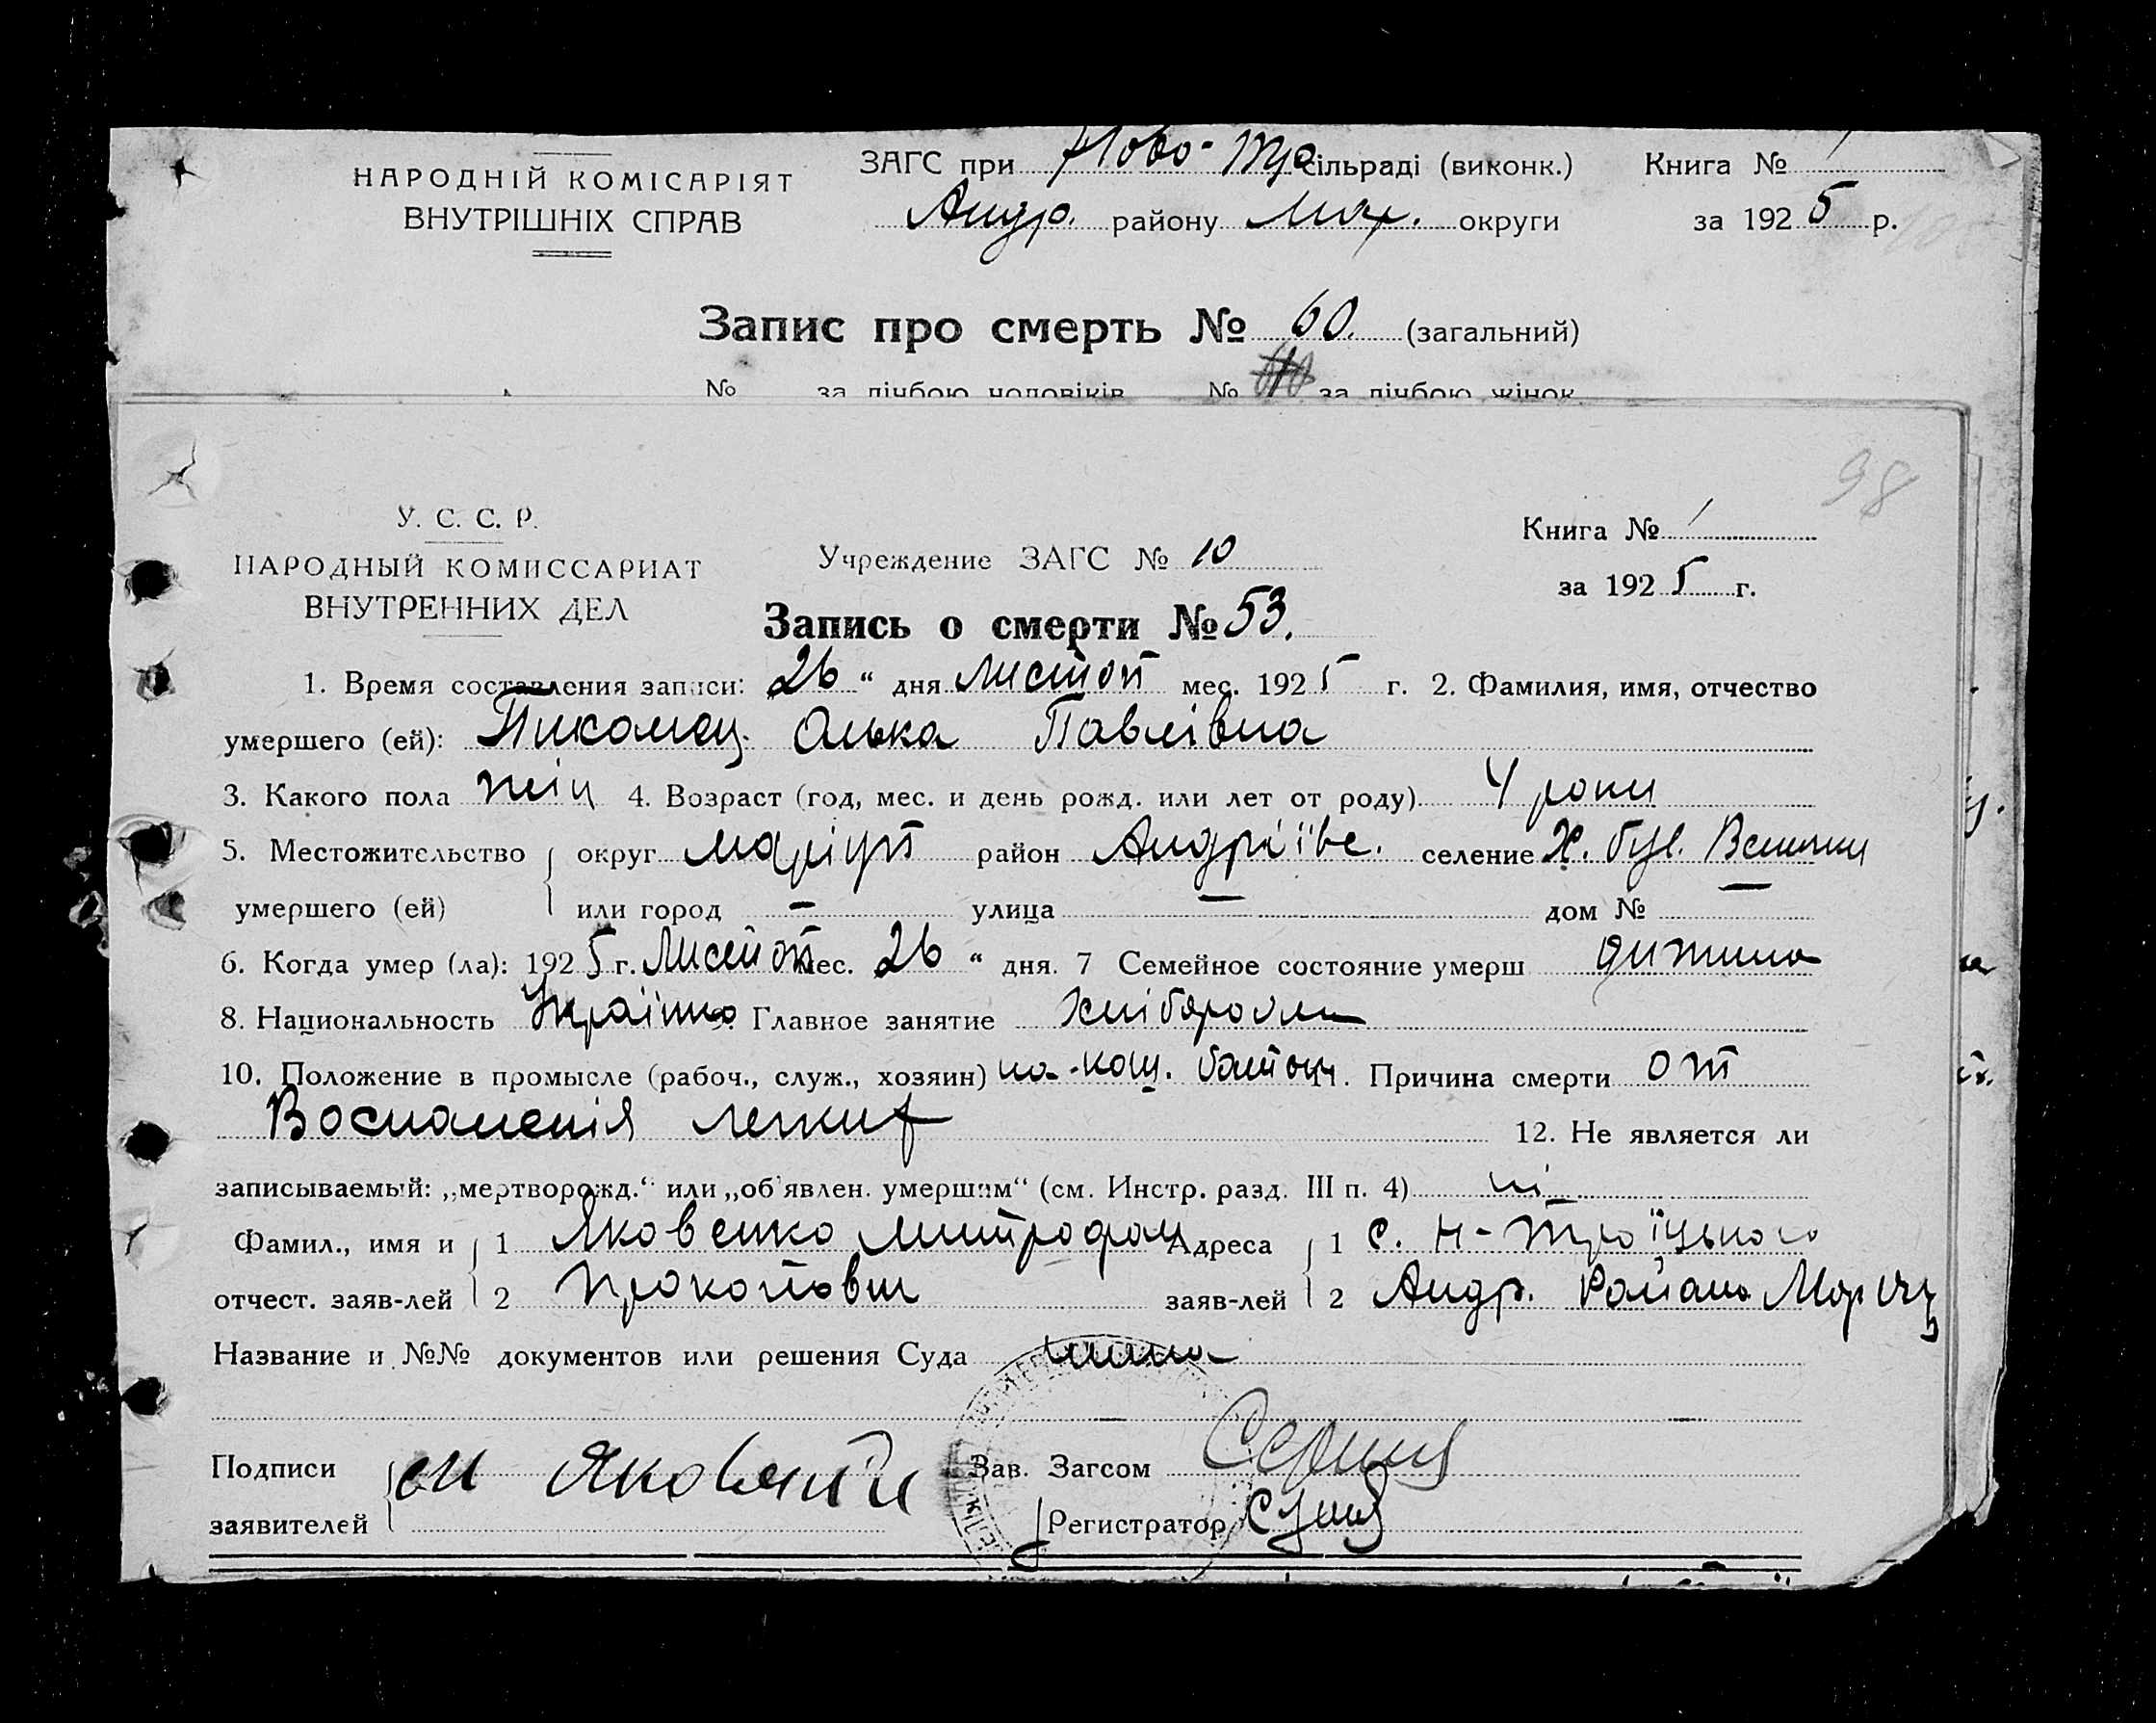 НАРОДНІЙ КОМІСАРІЯТ
ВНУТРІШНІХ СПРАВ
ЗАГС при Ново-Тро сільраді (виконк.)
Андр. району Мар. округи
Книга № 1
за 1925 р.
Запис про смерть № 60. (загальний)
№ за лічбою чоловіків № за лічбою жінок
98
У. С. С. Р.
НАРОДНЫЙ КОМИССАРИАТ
ВНУТРЕННИХ ДЕЛ
Учреждение ЗАГС № 10
Книга № 1
за 1925 г.
Запись о смерти № 53.
1. Время составления записи: 26 " дня Листоп мес. 1925 г. 2. Фамилия, имя, отчество
умершего (ей): Олька Павлівна
3. Какого пола жін 4. Возраст (год, мес. и день рожд. или лет от роду) 4 роки
5. Местожительство округ Маріуп район Андріївс. селение Х. бул.
умершего (ей) или город — улица — дом № —
6. Когда умер (ла): 1925 г. Листоп мес. 26 " дня. 7 Семейное состояние умерш дитина
8. Национальность Українка Главное занятие хлібороби
10. Положение в промысле (рабоч., служ., хозяин) на кош. батьк 11. Причина смерти от
Воспаленія легких
12. Не является ли
записываемый: „мертворожд." или „об'явлен. умершим" (см. Инстр. разд. III п. 4) ні
Фамил., имя и 1 Яковенко Митрофан Адреса 1 с. Н-Троїцького
отчест. заяв-лей 2 Прокопович заяв-лей 2 Андр. Району Маріуп
Название и №№ документов или решения Суда нима
Подписи Зав. Загсом
заявителей Регистратор